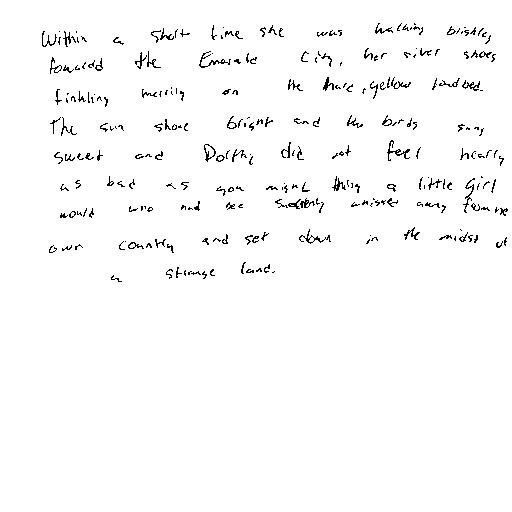 Within a short time she was walking briskley
towards the Emerald City, her silver shoes
tinkling merrily on the hard, yellow roadbed.
The sun shone bright and the birds sang
sweet and Dorthy did not feel nearly
as bad as you might think a little girl
would who had been suddenly whisked away from her
own country and set down in the midst of
a strange land.